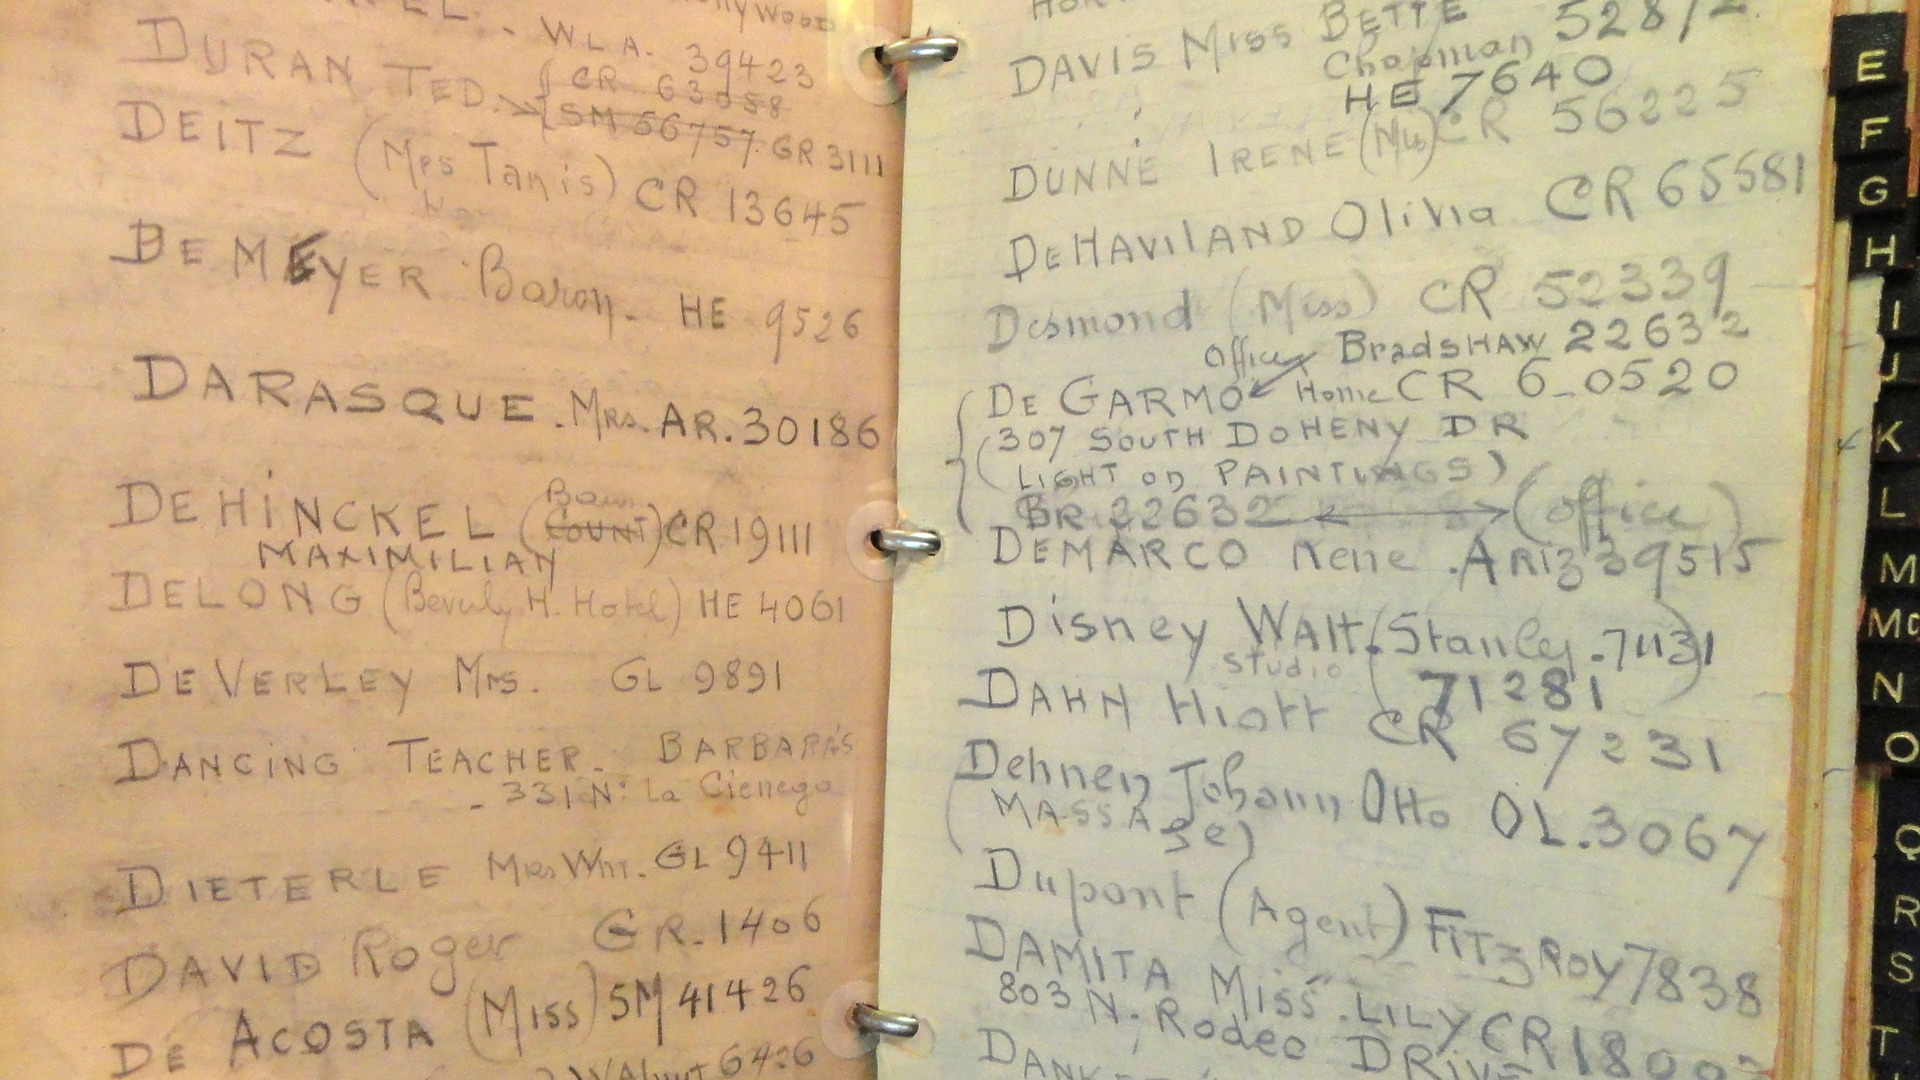 WLA. 39423
DURAN TED. CR 63058
SM 56757. GR 3111
DEITZ (Mrs Tanis) CR 13645
DE MEYER Baron. HE 9526
DARASQUE. Mrs. AR. 30186
DEHINCKEL (COUNT) CR 19111
Baron
MAXIMILIAN
DELONG (Beverly H. Hotel) HE 4061
DEVERLEY Mrs. GL 9891
DANCING TEACHER. BARBARA'S
- 331 N: La Cienega
DIETERLE Mrs Wm. GL 9411
DAVID Roger GR. 1406
DE ACOSTA (Miss) SM 41426
WAlnut 6426
DAVIS Miss BETTE
Chapman
HE 7640
DUNNE IRENE CR 56225
DEHAVILAND Olivia CR 65581
Desmond (Miss) CR 52339
Office BradSHAW 22632
DE GARMO Home CR 6-0520
(307 SOUTH DOHENY DR
(LIGHT on PAINTINGS)
BR 22632 (office)
DEMARCO Rene. ARIZ 39515
Disney WAlt. (Stanley. 71131
Studio 71281)
DAHN Hiatt CR 67231
Dehnen Johann Otto OL. 3067
(MASSAge)
Dupont (Agent) FITZROY 7838
DAMITA MISS. LILY CR
803 N. Rodeo DRIVE
E
F
G
H
I
J
K
L
M
Mc
N
O
Q
R
S
T